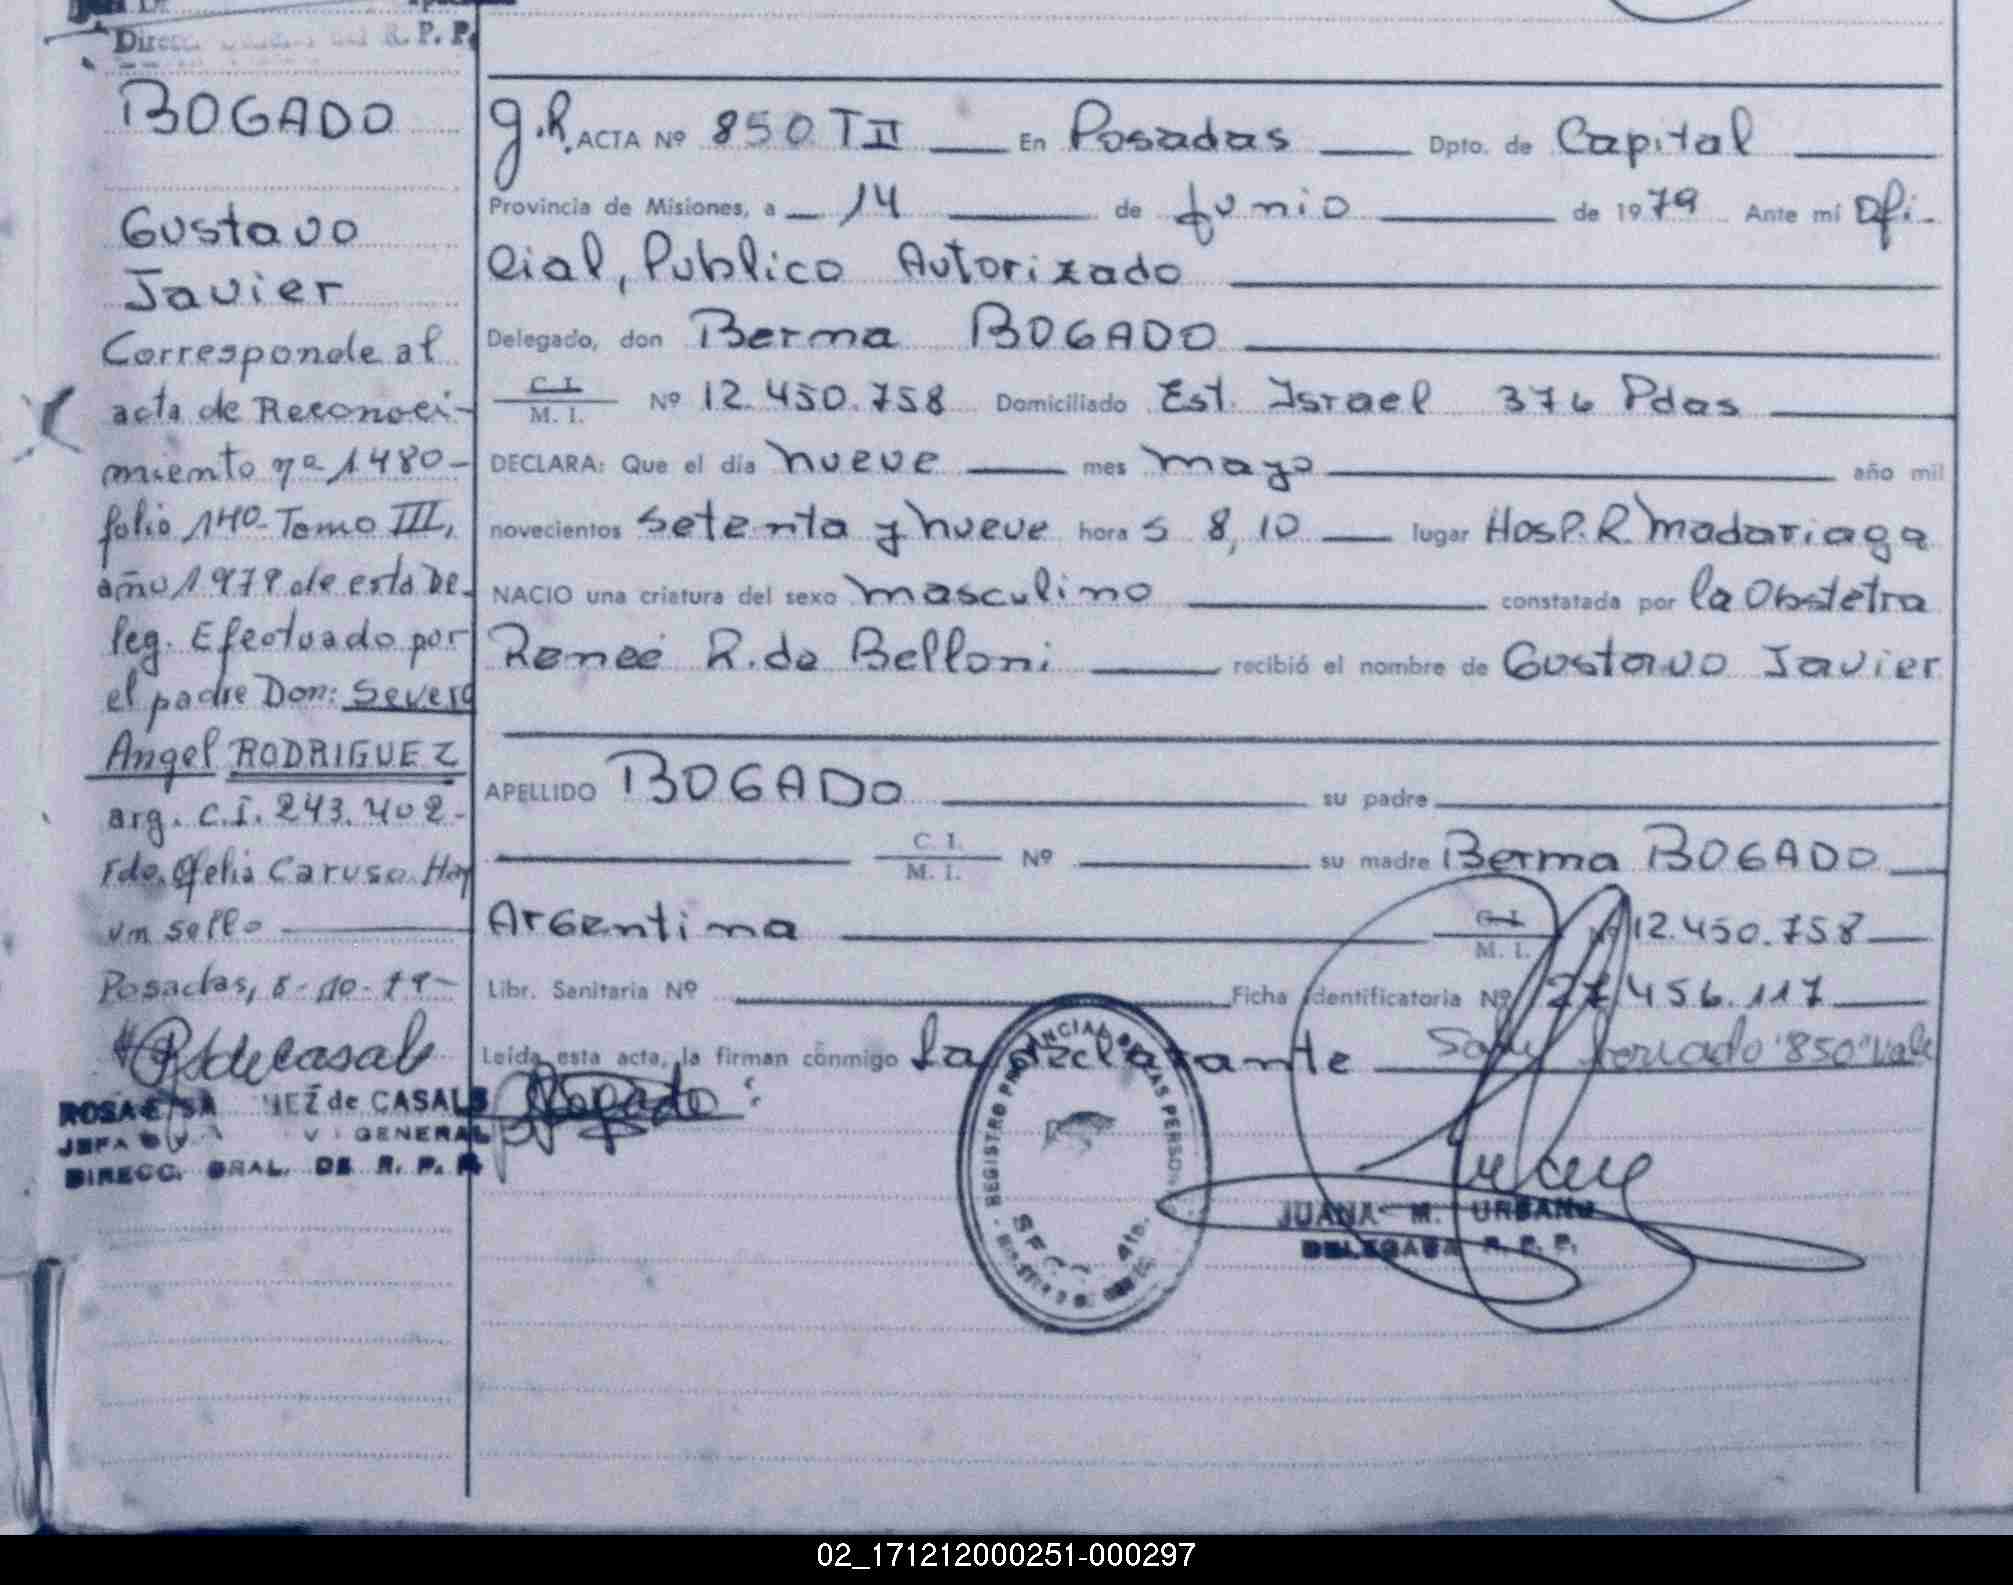 Direcc
BOGADO
Gustavo
Javier
Corresponde al
acta de Reconoci-
miento nº 1480-
folio 140- Tomo III,
año 1979 de esta De-
leg. Efectuado por
el padre Don: Severo
Angel RODRIGUEZ
arg. C.I. 243.402-
Fdo. Ofelia Caruso. Hay
un sello
Posadas, 8-10-79-
ROSA E SA de CASALS
JEFA GENERAL
DIRECC. GRAL. DE R. P. P.
g.R. ACTA Nº 850 TII En Posadas Dpto. de Capital
Provincia de Misiones, a 14 de junio de 1979 Ante mí Ofi-
cial, Publico Autorizado
Delegado, don Berma BOGADO
C. I. / M. I. Nº 12.450.758 Domiciliado Est. Israel 376 Pdas
DECLARA: Que el día nueve mes mayo año mil
novecientos setenta y nueve hora s 8,10 lugar Hosp. R. Madariaga
NACIO una criatura del sexo masculino constatada por la Obstetra
Reneé R. de Belloni recibió el nombre de Gustavo Javier
APELLIDO BOGADO su padre
C. I. / M. I. Nº su madre Berma BOGADO
Argentina C. I. / M. I. Nº 12.450.758
Libr. Sanitaria Nº Ficha Identificatoria Nº 27.456.117
Leída esta acta, la firman conmigo la declarante "850" vale
Bogado
REGISTRO PROVINCIAL DE LAS PERSONAS
JUANA M. URBANO
DELEGADA R. P. P.
02_171212000251-000297